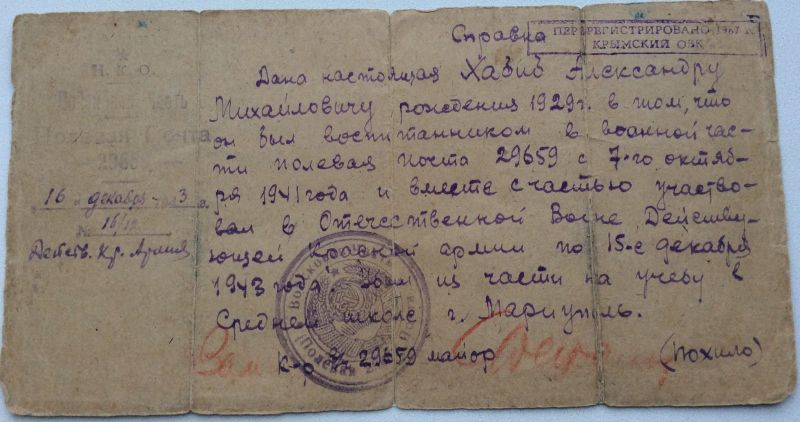 Справка
ПЕРЕРЕГИСТРИРОВАНО 1967 г.
КРЫМСКИЙ ОВК
Н. К. О.
Полевая Почта
16 декабря 1943 г.
№ 16/12
Действ. Кр. Армия
Дана настоящая Хабиб Александру
Михайловичу рождения 1929 г. в том, что
он был воспитанником в военной час-
ти полевая почта 29659 с 7-го октяб-
ря 1941 года и вместе с частью участво-
вал в Отечественной Войне Действу-
ющей Красной армии по 15-е декабря
1943 года из части на учебу в
Средней школе г. Мариуполь.
К-р 29659 майор (Похило)